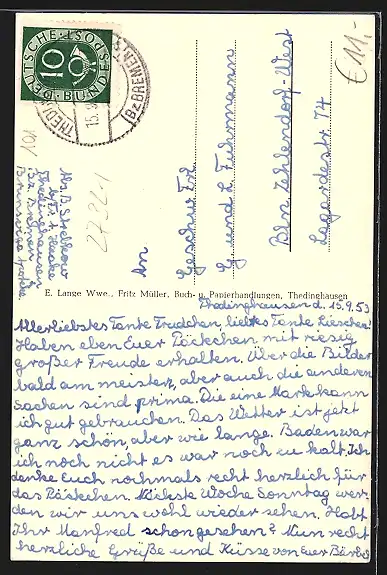 DEUTSCHE · BUNDESPOST
10
THEDINGHAUSEN
(Bz BREMEN)
15.9.
€ 11,-
10/
27321
Abs. B.
b/Fr.
Thedinghausen
Bz. Bremen
Braunschweiger
An
Geschw. Frl.
G. und L. Fuhrmann
Bln. Zehlendorf-West
Legardestr. 74
E. Lange Wwe., Fritz Müller, Buch- u. Papierhandlungen, Thedinghausen
Thedinghausen d. 15.9.53
Allerliebstes Tante Trudchen, liebes Tante Lieschen!
Haben eben Euer Päckchen mit riesig
großer Freude erhalten. Über die Bilder
bald am meisten, aber auch die anderen
Sachen sind prima. Die eine Mark kann
ich gut gebrauchen. Das Wetter ist jetzt
ganz schön, aber wie lange. Baden war
ich noch nicht es war noch zu kalt. Ich
danke Euch nochmals recht herzlich für
das Päckchen. Nächste Woche Sonntag wer-
den wir uns wohl wieder sehen. Habt
Ihr Manfred schon gesehen? Nun recht
herzliche Grüße und Küsse von Euer Bärbel